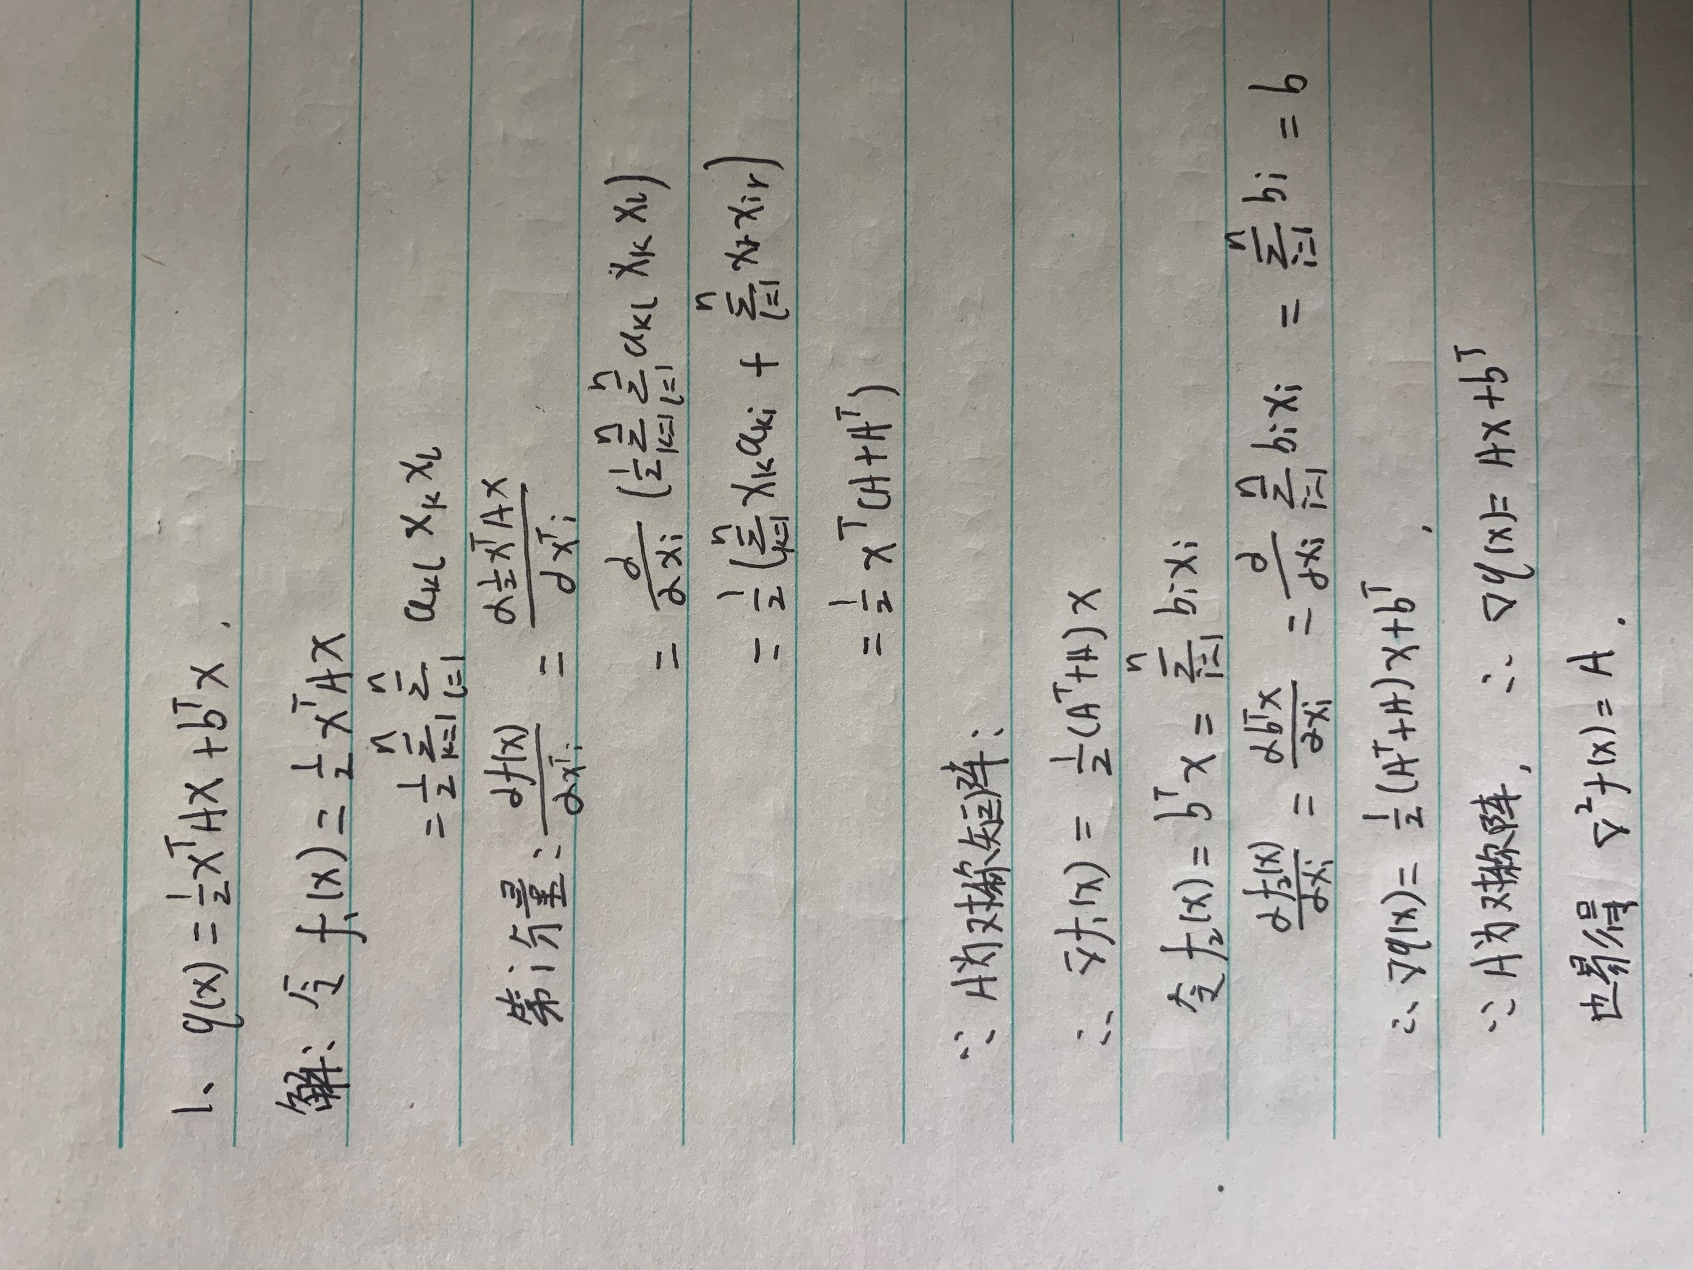 1、q(x) = ½xᵀAx + bᵀx.
解: 令 f₁(x) = ½xᵀAx
= ½ ∑ₖ₌₁ⁿ ∑ₗ₌₁ⁿ aₖₗ xₖ xₗ
第i分量: ∂f(x)/∂xᵀᵢ = ∂½xᵀAx/∂xᵀᵢ
= ∂/∂xᵢ (½ ∑ₖ₌₁ⁿ ∑ₗ₌₁ⁿ aₖₗ xₖ xₗ)
= ½ (∑ₖ₌₁ⁿ xₖaₖᵢ + ∑ₗ₌₁ⁿ xᵣxᵢᵣ)
= ½ xᵀ(A+Aᵀ)
∵ A为对称矩阵:
∴ ∇f₁(x) = ½(Aᵀ+A)x
令f₂(x) = bᵀx = ∑ᵢ₌₁ⁿ bᵢxᵢ
∂f₂(x)/∂xᵢ = ∂bᵀx/∂xᵢ = ∂/∂xᵢ ∑ᵢ₌₁ⁿ bᵢxᵢ = ∑ᵢ₌₁ⁿ bᵢ = b
∴ ∇q(x) = ½(Aᵀ+A)x+bᵀ,
∵ A为对称阵, ∴ ∇q(x) = Ax+bᵀ
也易得 ∇²f(x) = A.